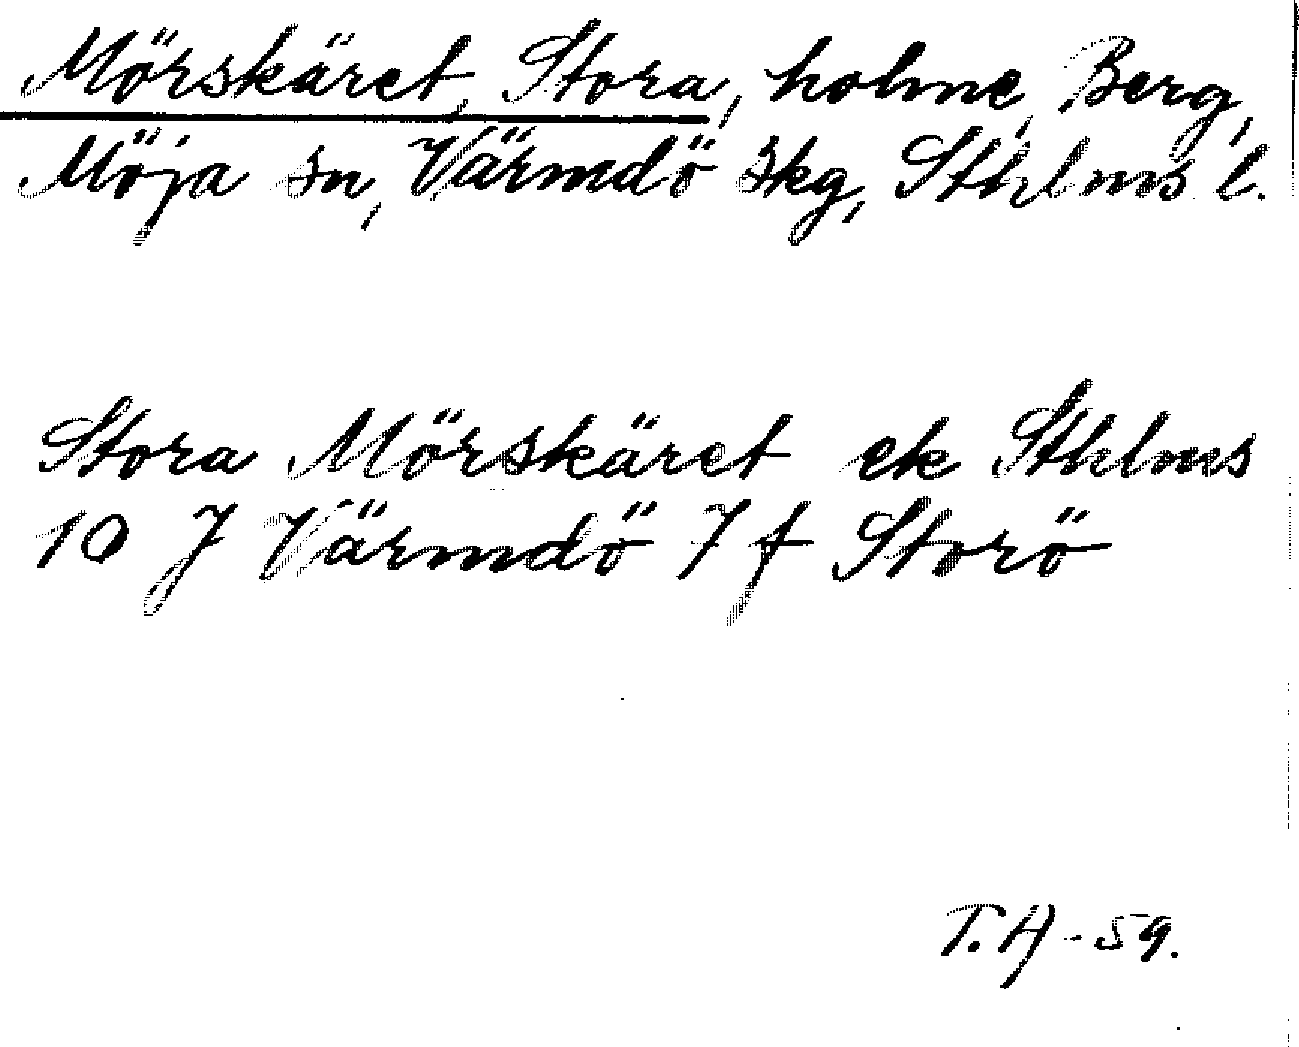 Mörskäret, Stora, holme, Berg,
Möja sn, Värmdö skg, Sthlms l.
Stora Mörskäret ek Sthlms
10 J Värmdö 7 f Storö
T. H-59.